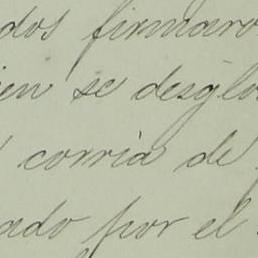 dos firmaro
ien se desglo
corria de
ado por el